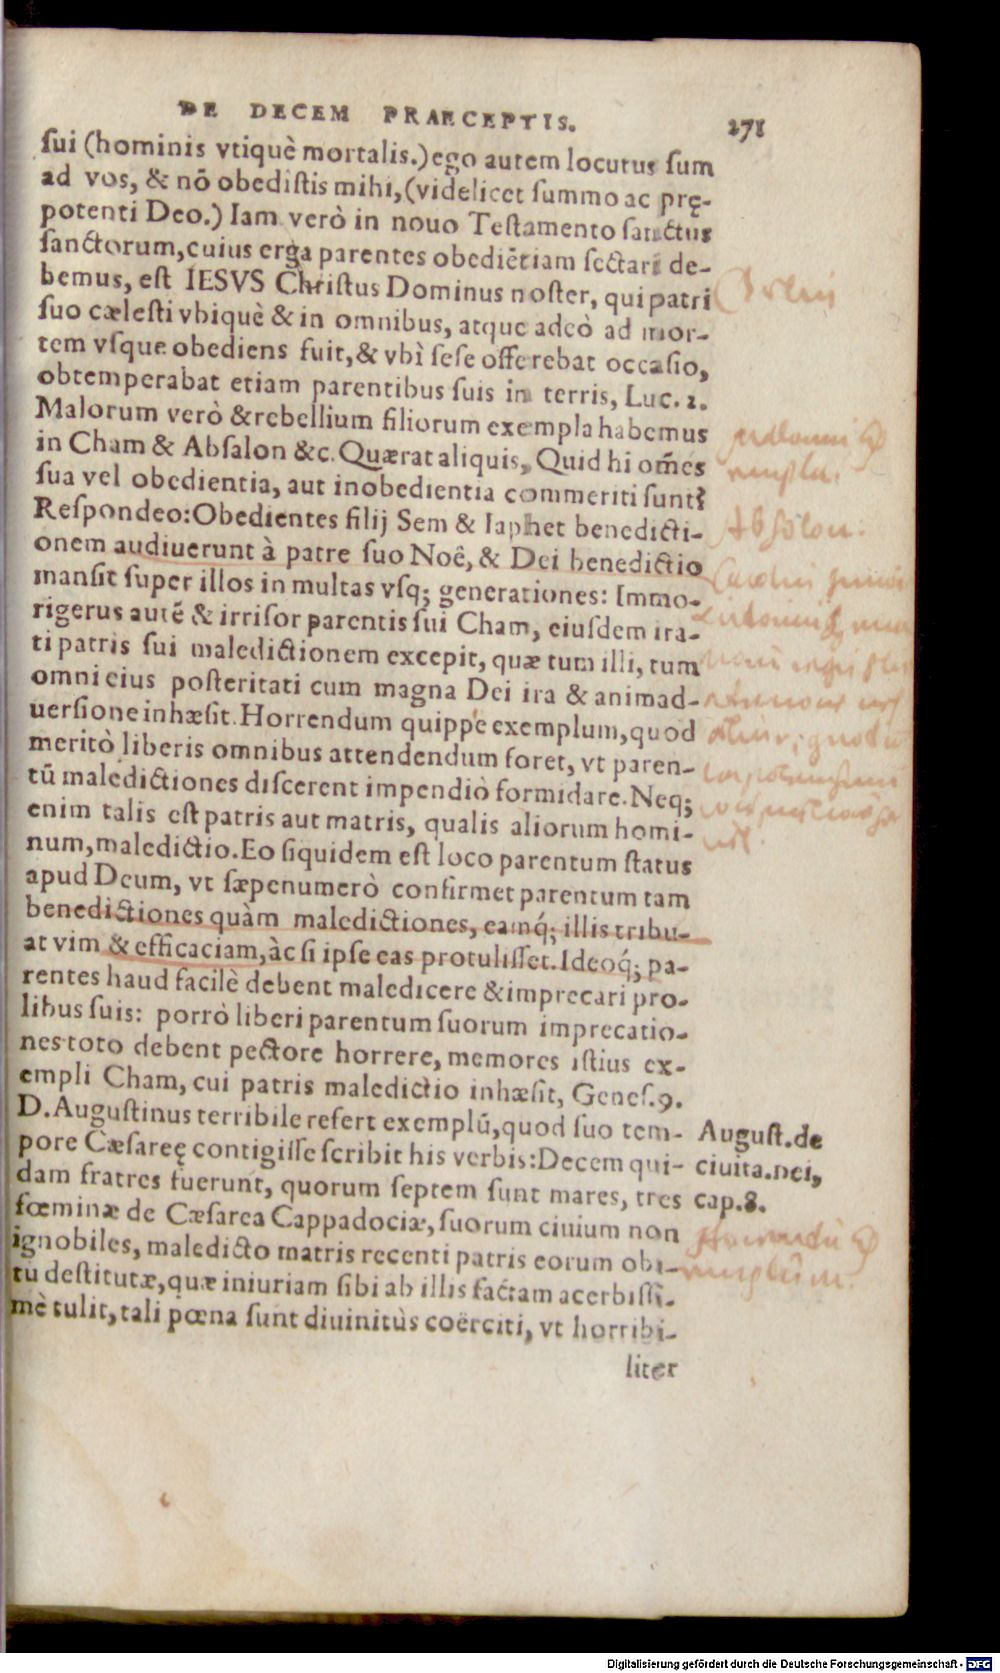 DE DECEM PRAECEPTIS. 271
sui (hominis vtiquè mortalis.) ego autem locutus sum
ad vos, & nō obedistis mihi, (videlicet summo ac prę-
potenti Deo.) Iam verò in nouo Testamento sanctus
sanctorum, cuius erga parentes obediētiam sectari de-
bemus, est IESVS Christus Dominus noster, qui patri
suo cælesti vbiquè & in omnibus, atque adeò ad mor-
tem vsque obediens fuit, & vbì sese offerebat occasio,
obtemperabat etiam parentibus suis in terris, Luc. 2.
Malorum verò & rebellium filiorum exempla habemus
in Cham & Absalon &c. Quærat aliquis, Quid hi om̄es
sua vel obedientia, aut inobedientia commeriti sunt?
Respondeo: Obedientes filij Sem & Iaphet benedicti-
onem audiuerunt à patre suo Noê, & Dei benedictio
mansit super illos in multas vsq; generationes: Immo-
rigerus autē & irrisor parentis sui Cham, eiusdem ira-
ti patris sui maledictionem excepit, quæ tum illi, tum
omni eius posteritati cum magna Dei ira & animad-
uersione inhæsit. Horrendum quippe exemplum, quod
meritò liberis omnibus attendendum foret, vt paren-
tū maledictiones discerent impendiò formidare. Neq;
enim talis est patris aut matris, qualis aliorum homi-
num, maledictio. Eo siquidem est loco parentum status
apud Deum, vt sæpenumerò confirmet parentum tam
benedictiones quàm maledictiones, eamq́; illis tribu-
at vim & efficaciam, àc si ipse eas protulisset. Ideoq́; pa-
rentes haud facilè debent maledicere & imprecari pro-
libus suis: porrò liberi parentum suorum imprecatio-
nes toto debent pectore horrere, memores istius ex-
empli Cham, cui patris maledictio inhæsit, Genes. 9.
D. Augustinus terribile refert exemplū, quod suo tem-
pore Cæsareę contigisse scribit his verbis: Decem qui-
dam fratres fuerunt, quorum septem sunt mares, tres
fœminæ de Cæsarea Cappadociæ, suorum ciuium non
ignobiles, maledicto matris recenti patris eorum obi-
tu destitutæ, quæ iniuriam sibi ab illis factam acerbissi-
mè tulit, tali pœna sunt diuinitùs coërciti, vt horribi-
liter
Absolon.
August. de
ciuita. Dei,
cap. 8.
Digitalisierung gefördert durch die Deutsche Forschungsgemeinschaft - DFG